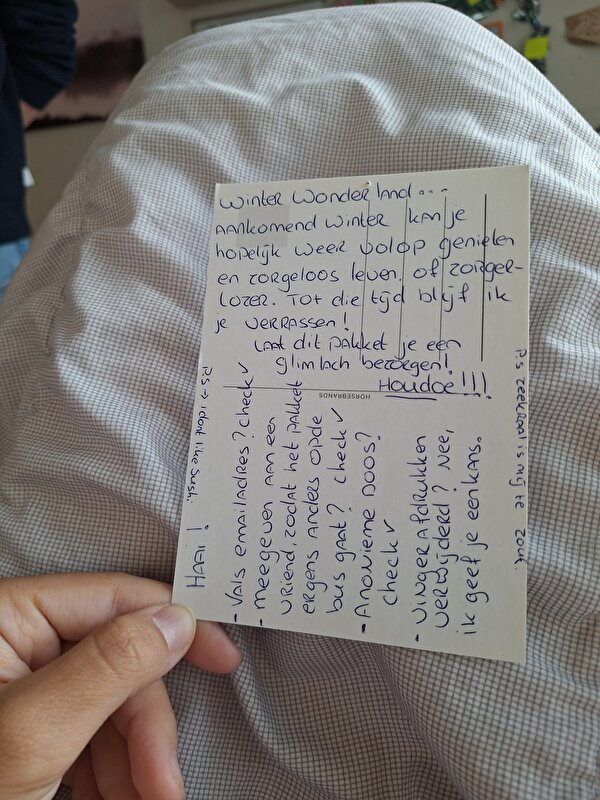 Winter Wonderland...
Aankomend winter kan je
hopelijk weer volop genieten
en zorgeloos leven. of zorger-
lozer. Tot die tijd blijf ik
je verrassen!
Laat dit pakket je een
glimlach bezorgen!
Houdoe!!!
HORSEBRANDS
Haai!
- Vals emailadres? check ✓
- meegeven aan een
vriend, zodat het pakket
ergens anders op de
bus gaat? check ✓
- Anonieme doos?
check ✓
- Vingerafdrukken
verwijderd? Nee,
ik geef je een kans.
Ps → i dont like sushi.
Ps zeekraal is mij te zout